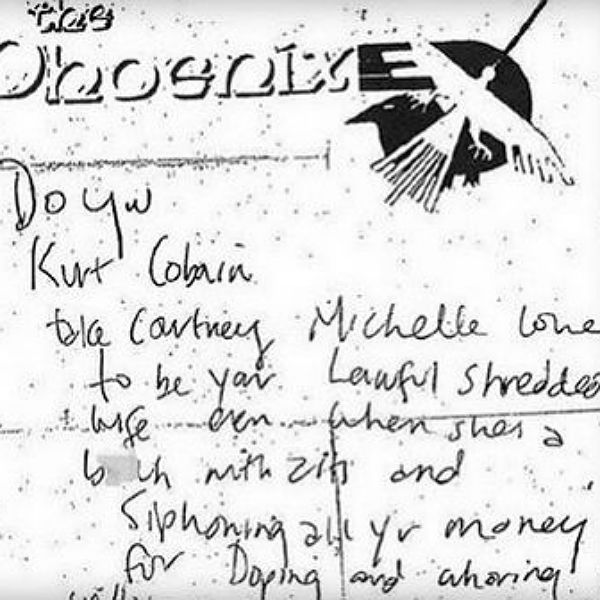 The
Phoenix
Do you
Kurt Cobain
take Courtney Michelle Love
to be your Lawful Shredded
wife even when shes a
b ch with zits and
siphoning all yr money
for Doping and whoring